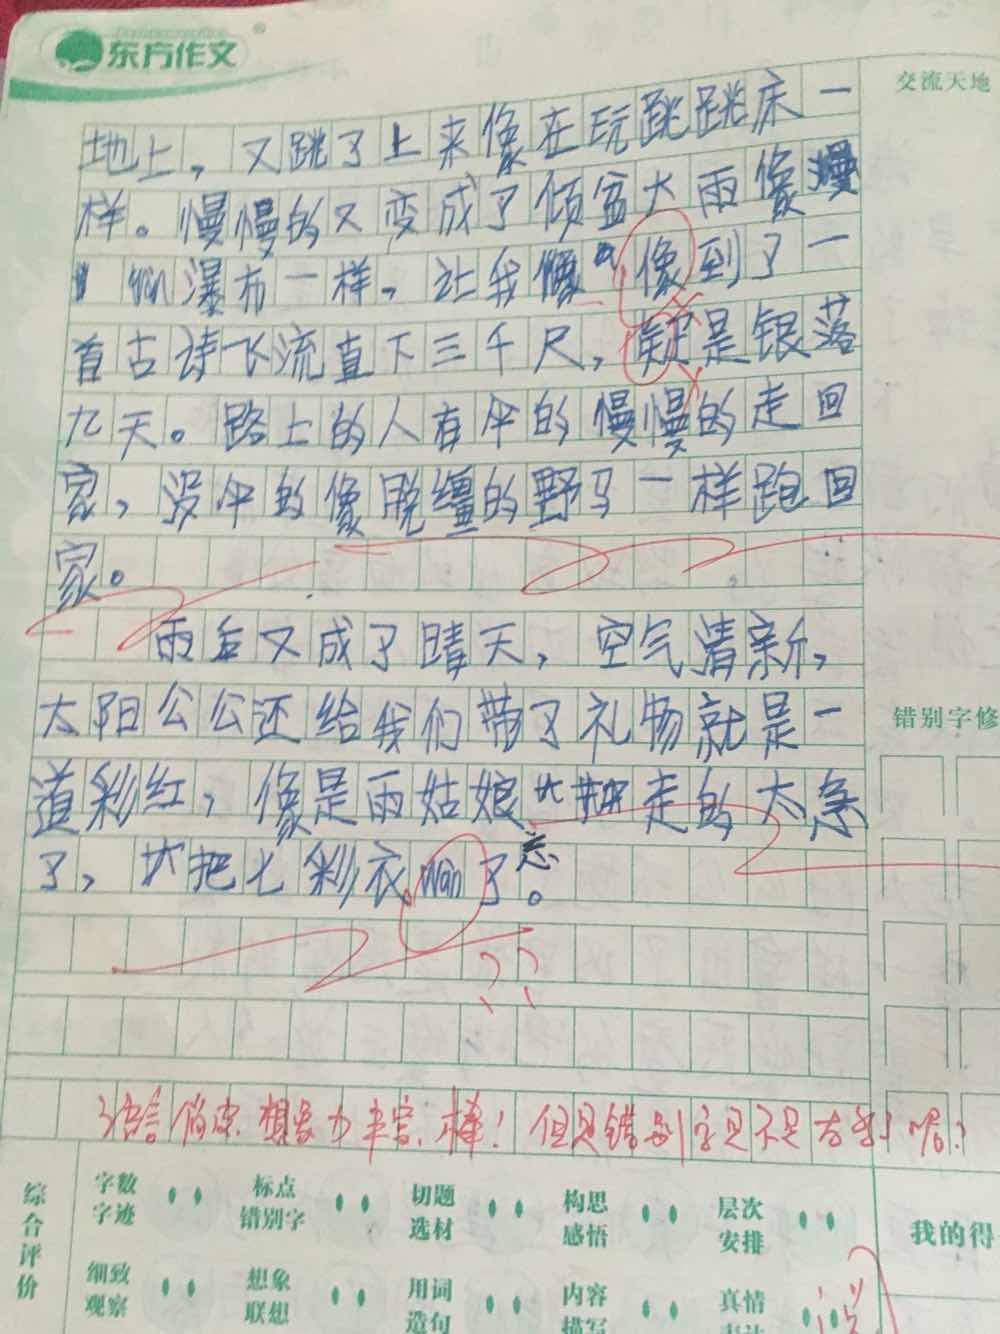 东方作文
交流天地
地上，又跳了上来像在玩跳跳床一
样。慢慢的又变成了倾盆大雨像
瀑布一样，让我像到了一
首古诗飞流直下三千尺，疑是银落
九天。路上的人有伞的慢慢的走回
家，没伞的像脱缰的野马一样跑回
家。
雨后又成了晴天，空气清新，
太阳公公还给我们带了礼物就是一
道彩红，像是雨姑娘走的太急
了，把七彩衣wan了。
忘
错别字修
语言 想象力丰富，棒！但是错别字是不是太多了呢？
综合评价
字数字迹
标点错别字
切题选材
构思感悟
层次安排
我的得
细致观察
想象联想
用词造句
内容描写
真情